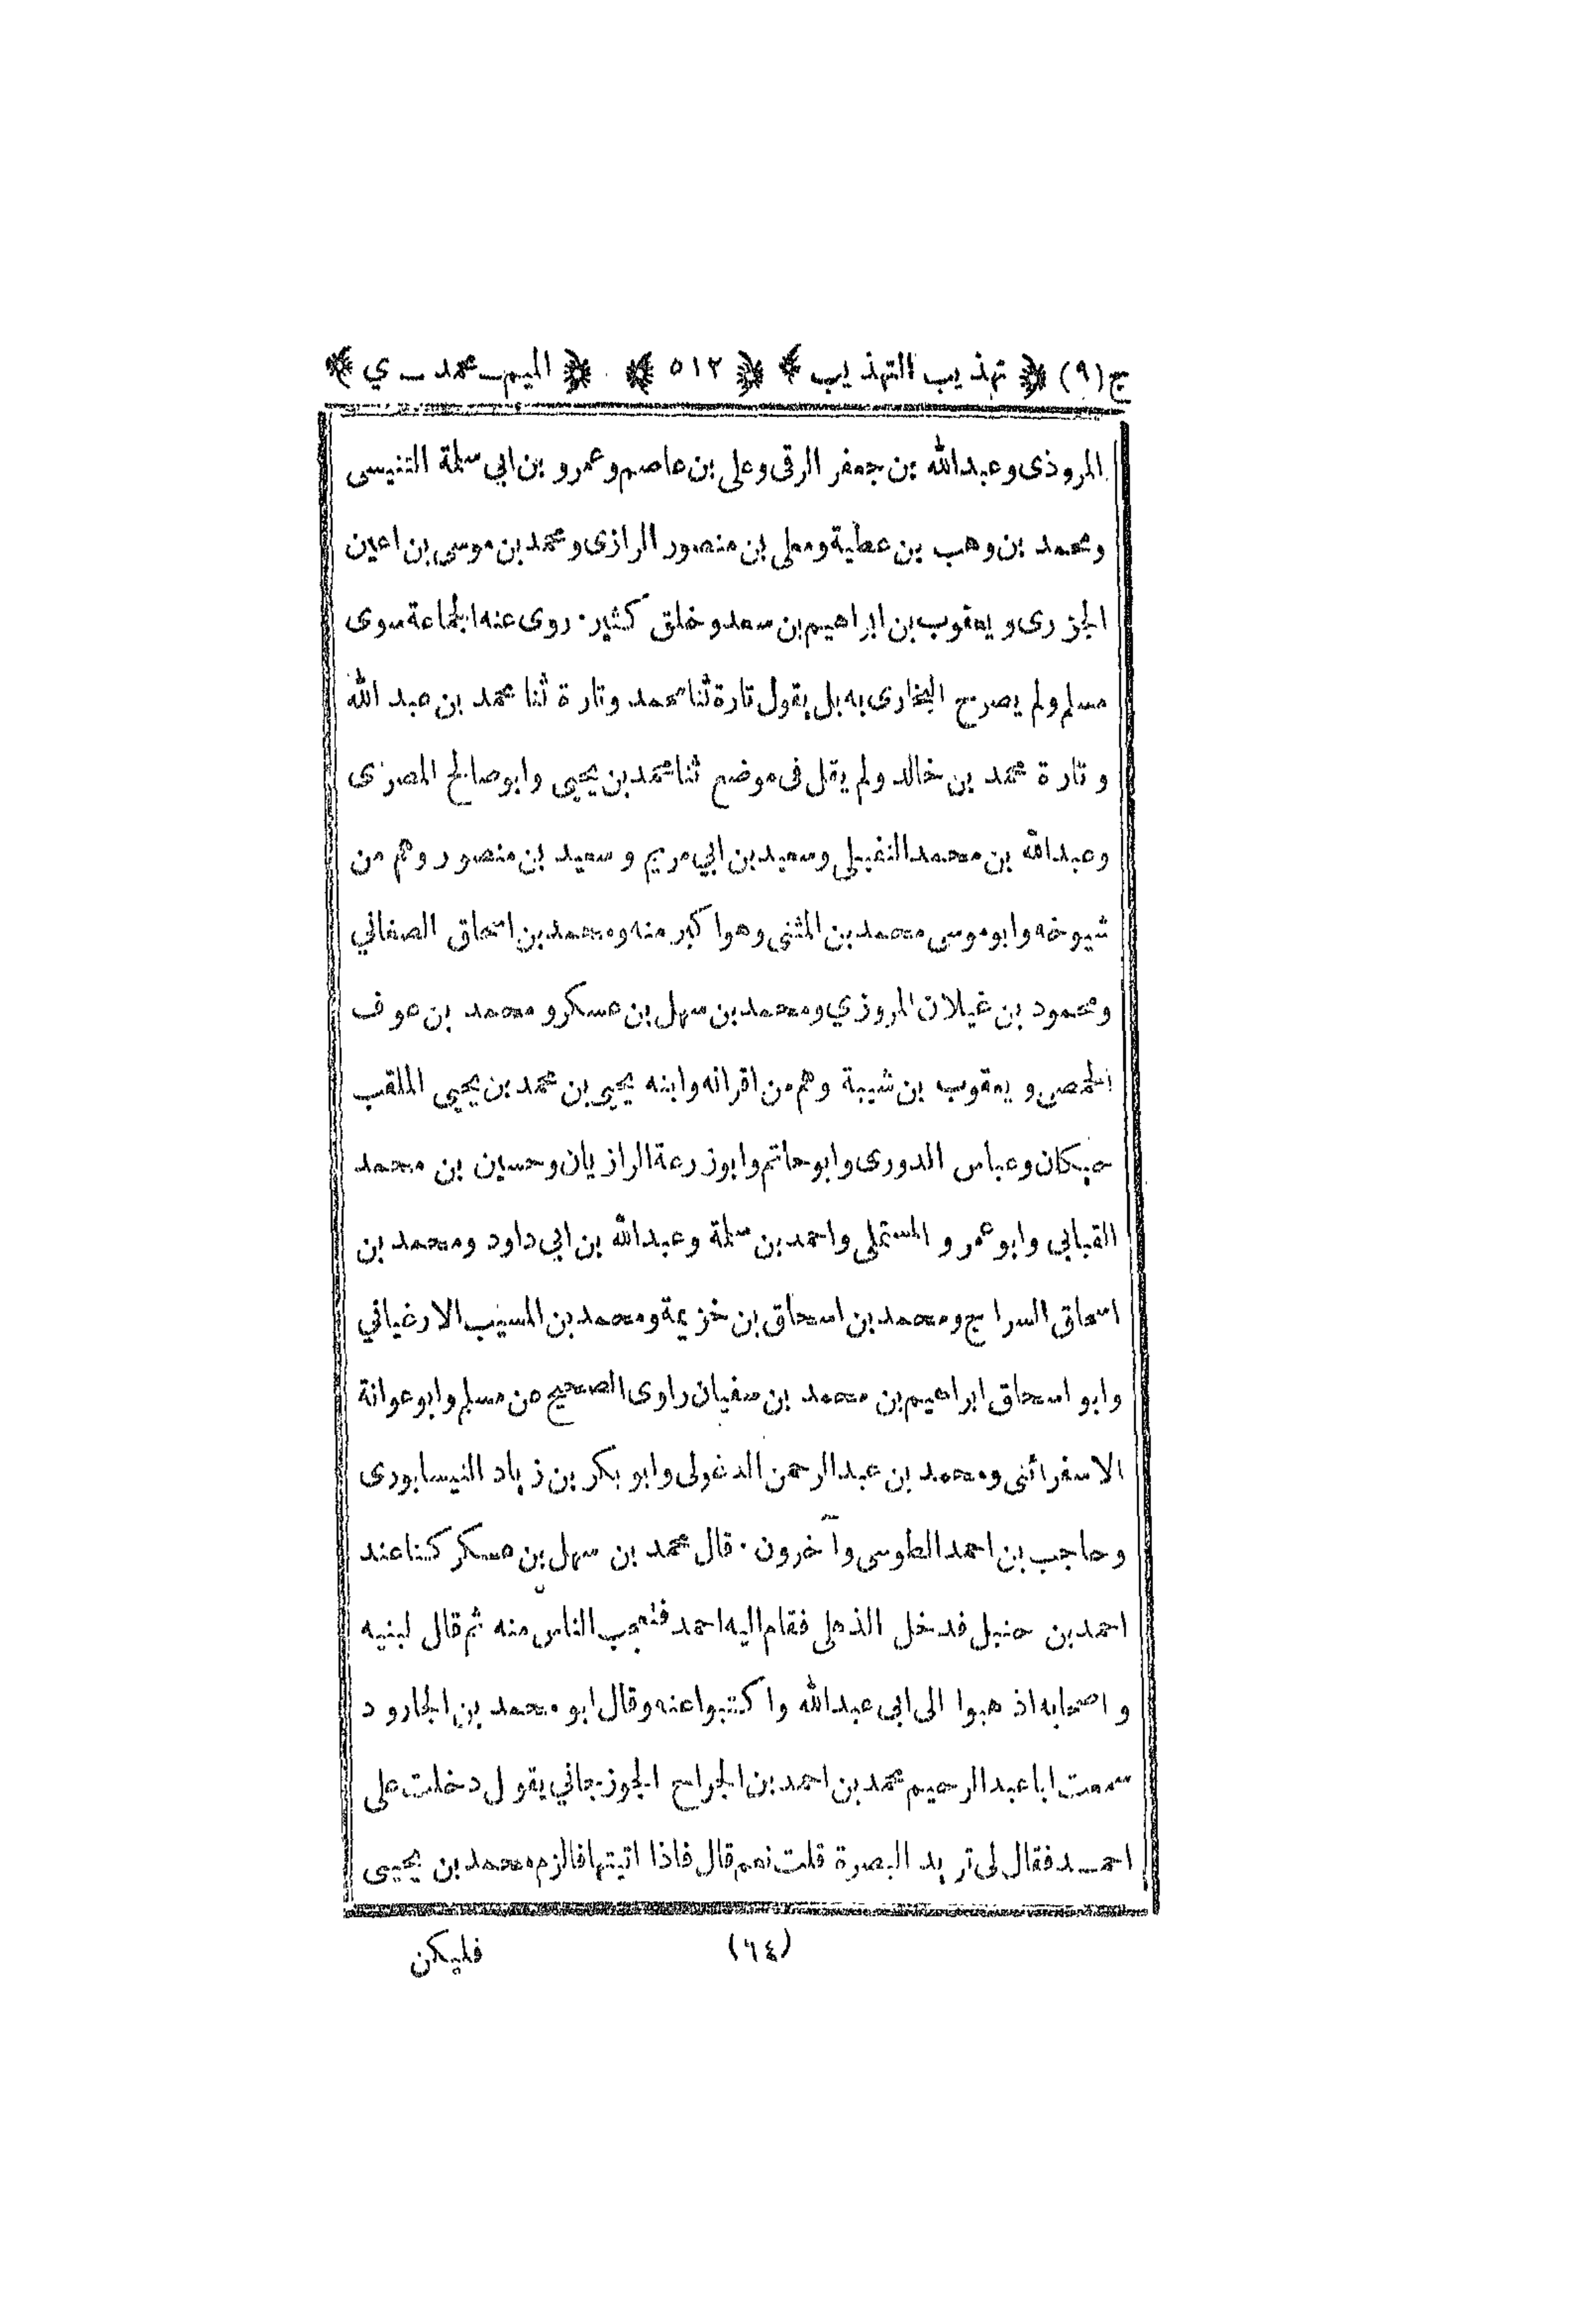 ج(٩) ﴿ تهذيب التهذيب ﴾ ﴿ ٥١٢ ﴾ ﴿ الميم ـ محمد ـ ي ﴾
المروذى وعبدالله بن جعفر الرقى وعلى بن عاصم وعمرو بن ابي سلمة التنيسى
ومحمد بن وهب بن عطية ومعلى بن منصور الرازى ومحمد بن موسى بن اعين
الجزرى ويعقوب بن ابراهيم بن سعد وخلق كثير . روى عنه الجماعة سوى
مسلم ولم يصرح البخارى به بل يقول تارة ثنا محمد وتارة ثنا محمد بن عبد الله
وتارة محمد بن خالد ولم يقل فى موضع ثنا محمد بن يحيى وابو صالح المصرى
وعبدالله بن محمد النفيلى وسعيد بن ابي مريم وسعيد بن منصور وهم من
شيوخه وابو موسى محمد بن المثنى وهو اكبر منه ومحمد بن اسحاق الصغاني
ومحمود بن غيلان المروزي ومحمد بن سهل بن عسكر ومحمد بن عوف
الحمصى ويعقوب بن شيبة وهم من اقرانه وابنه يحيى بن محمد بن يحيى الملقب
حيكان وعباس الدورى وابو حاتم وابو زرعة الرازيان وحسين بن محمد
القبابي وابو عمرو المستملى واحمد بن سلمة وعبدالله بن ابي داود ومحمد بن
اسحاق السراج ومحمد بن اسحاق بن خزيمة ومحمد بن المسيب الارغياني
وابو اسحاق ابراهيم بن محمد بن سفيان راوى الصحيح عن مسلم وابو عوانة
الاسفرائنى ومحمد بن عبدالرحمن الدغولى وابو بكر بن زياد النيسابورى
وحاجب بن احمد الطوسى وآخرون . قال محمد بن سهل بن عسكر كنا عند
احمد بن حنبل فدخل الذهلى فقام اليه احمد فتعجب الناس منه ثم قال لبنيه
واصحابه اذهبوا الى ابى عبدالله واكتبوا عنه وقال ابو محمد بن الجارود
سمعت ابا عبدالرحيم محمد بن احمد بن الجراح الجوزجاني يقول دخلت على
احمـد فقال لى تريد البصرة قلت نعم قال فاذا اتيتها فالزم محمد بن يحيى
(٦٤) فليكن